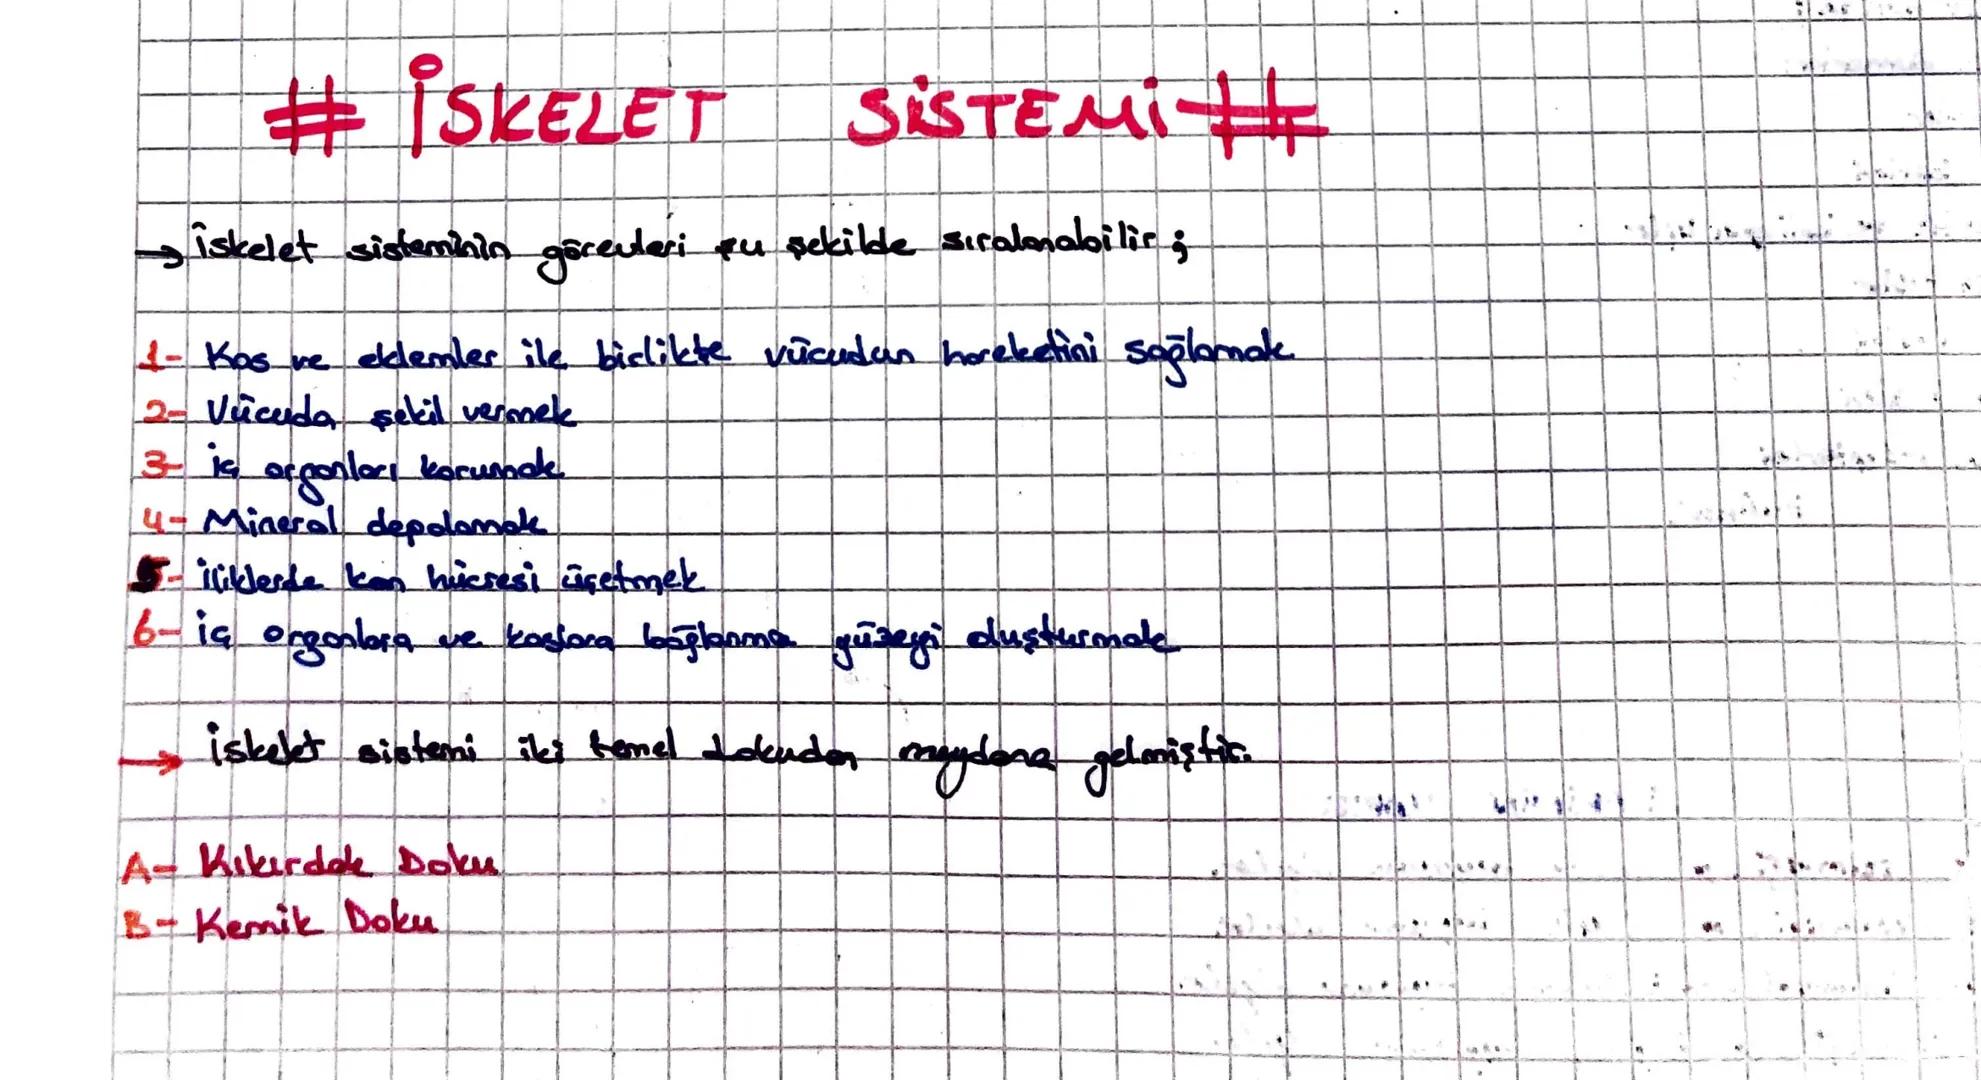 # İSKELET SİSTEMİ #
→ İskelet sisteminin görevleri şu şekilde sıralanabilir ;
1- Kas ve eklemler ile birlikte vücudun hareketini sağlamak
2- Vücuda şekil vermek
3- iç organları korumak
4- Mineral depolamak
5- iliklerde kan hücresi üretmek
6- iç organlara ve kaslara bağlanma yüzeyi oluşturmak
→ İskelet sistemi iki temel dokudan meydana gelmiştir.
A- Kıkırdak Doku
B- Kemik Doku